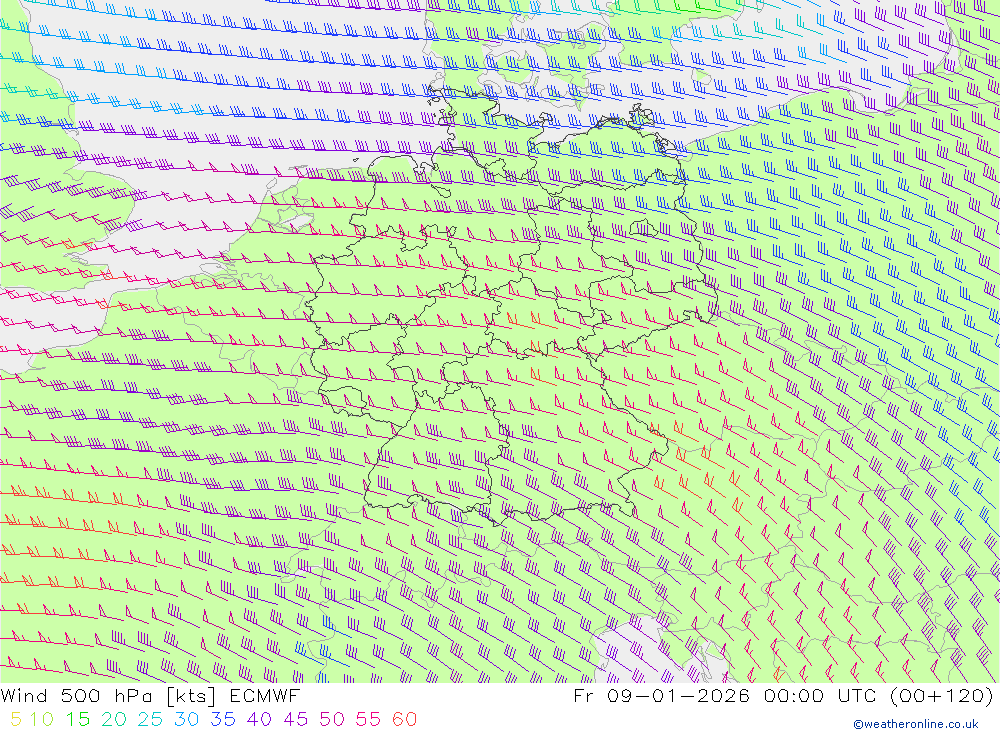 Wind 500 hPa [kts] ECMWF Fr 09-01-2026 00:00 UTC (00+120)
5 10 15 20 25 30 35 40 45 50 55 60
©weatheronline.co.uk